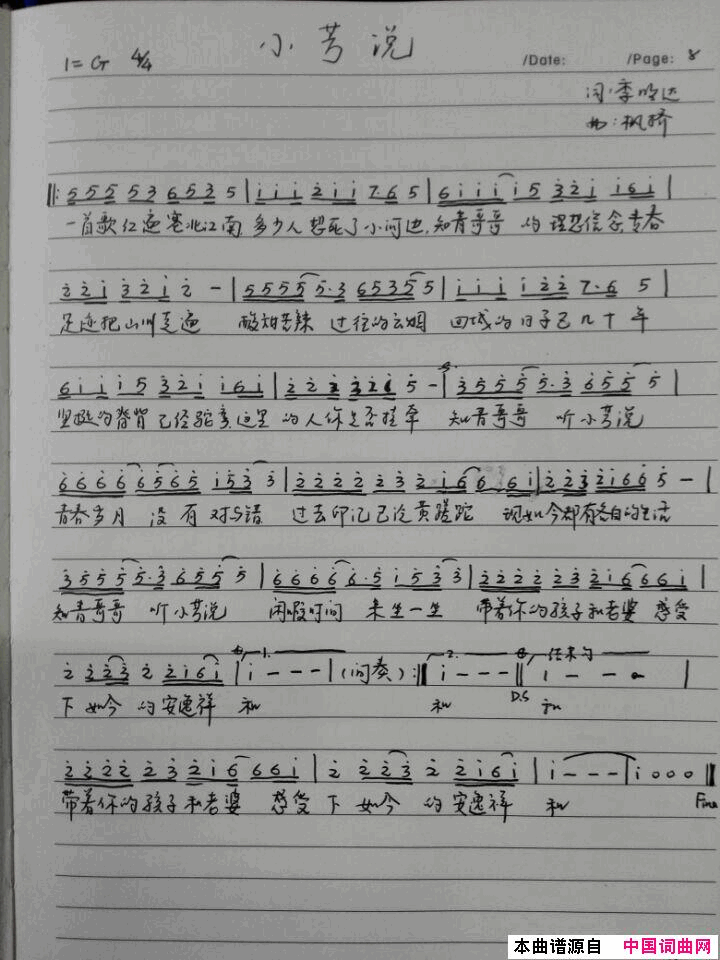 小芳说
1=G 4/4 /Date: /Page: 8
词:李
曲:枫桥
‖: 5 5 5 5 3 6 5 3 5 | i i i 2 i i 7·6 5 | 6 i i i i 5 3 2 i i 6 i |
一首歌红遍塞北江南,多少人想死了小河边,知青哥哥 的理想信念,青春
2 2 i 3 2 i 2 - | 5 5 5 5 5 5·3 6 5 3 5 5 | i i i i 2 2 7·6 5 |
足迹把山川走遍 酸甜苦辣 过往的云烟 回城的日子已几十年
6 i i i 5 3 2 i i 6 i | 2 2 2 3 2 i 5 - | 3 5 5 5 5 5·3 6 5 5 5 |
坚挺的脊背已经驼弯,这里 的人你是否挂牵 知青哥哥 听小芳说
6 6 6 6 6 5 6 5 i 5 3 3 | 2 2 2 2 2 3 2 i 6 6 6 i | 2 2 3 2 i 6 6 5 - |
青春岁月 没有对与错 过去印记已泛黄蹉跎 现如今都有各自的生活
3 5 5 5 5 5·3 6 5 5 5 | 6 6 6 6 6·5 i 5 3 3 | 2 2 2 2 2 3 2 i 6 6 6 i |
知青哥哥 听小芳说 闲暇时间 来坐一坐 带着你的孩子和老婆 感受
2 2 2 3 2 2 i 6 i | 1. i - - - | (间奏) :‖ 2. i - - - ‖ 结束句 i - - - |
下如今的安逸祥和 和 D.S 和
2 2 2 2 2 3 2 i 6 6 6 i | 2 2 2 3 2 2 i 6 i | i - - - | i 0 0 0 ‖
带着你的孩子和老婆 感受下如今 的安逸祥 和 Fine
本曲谱源自 中国词曲网